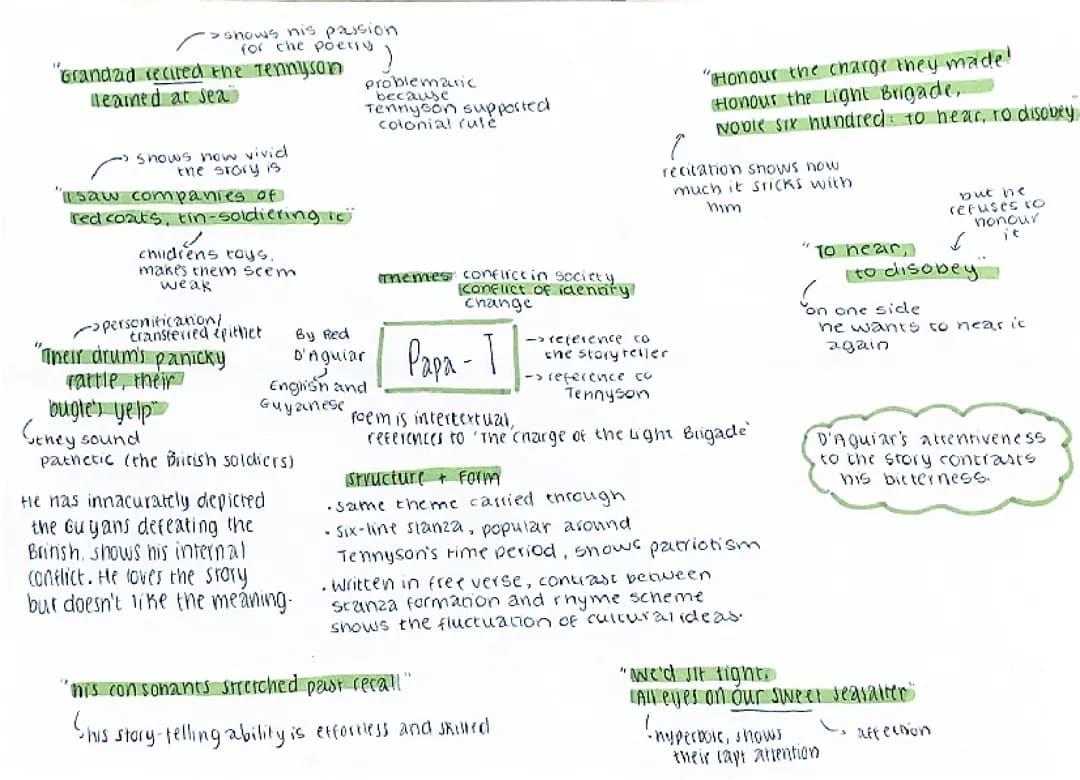 → shows his passion
for the poetry
"Grandad recited the Tennyson
learned at sea"
problematic
because
Tennyson supported
colonial rule
"Honour the charge they made!
Honour the Light Brigade,
Noble six hundred: to hear, to disobey
recitation shows how
much it sticks with
him
→ shows how vivid
the story is
"I saw companies of
redcoats, tin-soldiering it"
childrens toys,
makes them seem
weak
but he
refuses to
honour
it
"To hear,
to disobey"
on one side
he wants to hear it
again
themes: conflict in society
conflict of identity
change
→ personification/
transferred epithet
"Their drum's panicky
rattle, their
bugle's yelp"
they sound
pathetic (the British soldiers)
By Red
D'Aguiar
English and
Guyanese
Papa - T
→ reference to
the storyteller
→ reference to
Tennyson
Poem is intertextual,
references to 'The Charge of the Light Brigade'
D'Aguiar's attentiveness
to the story contrasts
his bitterness.
He has innacurately depicted
the Guyans defeating the
British, shows his internal
conflict. He loves the story
but doesn't like the meaning.
Structure + Form
· same theme carried through
· six-line stanza, popular around
Tennyson's time period, shows patriotism
· Written in free verse, contrast between
stanza formation and rhyme scheme
shows the fluctuation of cultural ideas.
"his consonants stretched past recall"
his story-telling ability is effortless and skilled
"We'd sit tight,
All eyes on our sweet seasalter"
· hyperbole, shows
their rapt attention
→ affection